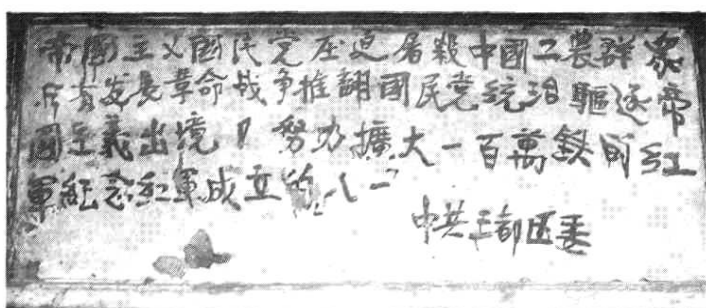 帝國主义國民党压迫屠殺中國工農群衆
只有发展革命战争推翻國民党統治驅逐帝
國主義出境！努力擴大一百萬鉄的红
軍紀念红軍成立的八一
中共王都区委